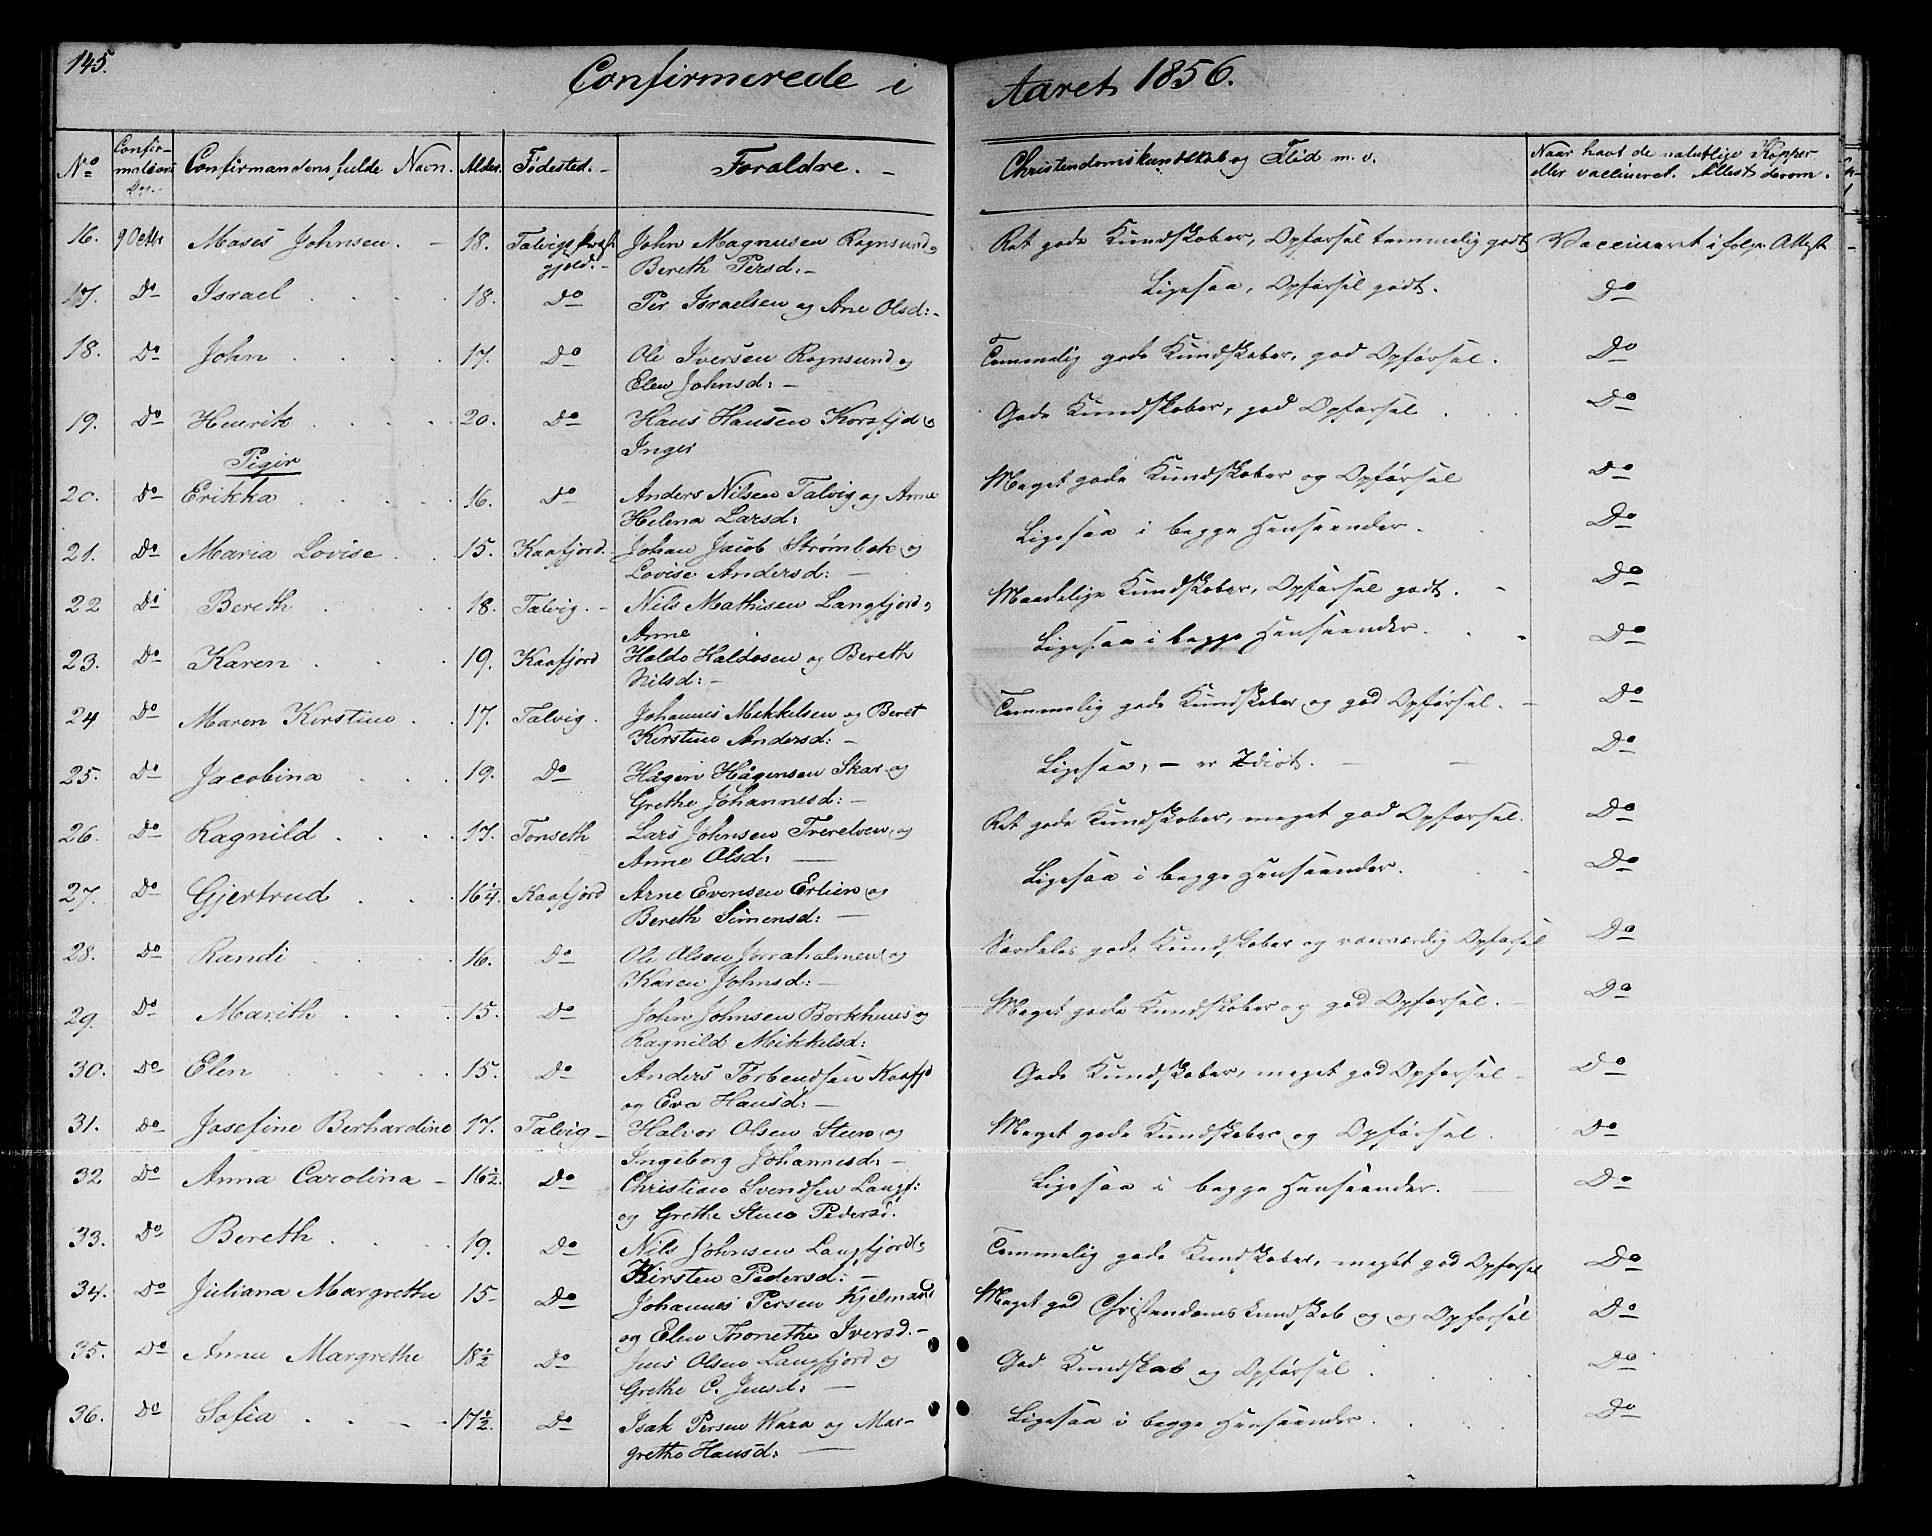 145.
Confirmerede i Aaret 1856.
No Confir- mations Dag. Confirmandens fulde Navn. Alder. Fødested. Foraldre. Christendomskundskab og Flid m. v. Naar havt de naturlige Kopper eller vaccineret. Attest derom.
16. 9 Octbr Moses Johnsen. 18. Talvigs Præste- John Magnusen Rognsund og Ret gode Kundskaber, Opførsel temmelig godt Vaccineret ifølge Attest
gjeld. Bereth Persd:
17. Do Israel 18. Do Per Israelsen og Ane Olsd: Ligesaa, Opførsel godt. Do
18. Do John 17. Do Ole Iversen Rognsund og Temmelig gode Kundskaber, god Opførsel. Do
Elen Johnsd:
19. Do Henrik 20. Do Hans Hansen Korsfjd og Gode Kundskaber, god Opførsel Do
Inger
Piger
20. Do Erikka 16. Do Anders Nilsen Talvig og Anne Meget gode Kundskaber og Opførsel Do
Helena Larsd:
21. Do Maria Lovise 15. Kaafjord. Johan Jacob Strømbek og Ligesaa i begge Henseender. Do
Lovise Andersd:
22 Do Bereth 18. Talvig. Nils Mathisen Langfjord og Maadelige Kundskaber, Opførsel godt. Do
Anne
23. Do Karen 19. Kaafjord Haldo Haldosen og Bereth Ligesaa i begge Henseender. Do
Nilsd:
24 Do Maren Kirstine 17. Talvig. Johannes Mikkelsen og Beret Temmelig gode Kundskaber og god Opførsel. Do
Kirstine Andersd:
25. Do Jacobina 19. Do Hågen Hågensen Skar og Ligesaa, - er Idiot. Do
Grethe Johannesd:
26. Do Ragnild 17. Tonseth Lars Johnsen Tverelven og Ret gode Kundskaber, meget god Opførsel. Do
Anne Olsd:
27. Do Gjertrud 16¼. Kaafjord Arne Evensen Erlien og Ligesaa i begge Henseender. Do
Bereth Simensd:
28. Do Randi 16. Do Ole Olsen Jorraholmen og Særdeles gode Kundskaber og roesværdig Opførsel Do
Karen Johnsd:
29. Do Marith 15. Do John Johnsen Borkhuus og Meget gode Kundskaber og god Opførsel. Do
Ragnild Mikkelsd:
30. Do Elen 15. Do Anders Torbendsen Kaafjd Gode Kundskaber, meget god Opførsel Do
og Eva Hansd:
31. Do Josefine Berhardine 17. Talvig Halvor Olsen Steen og Meget gode Kundskaber og Opførsel. Do
Ingeborg Johannesd:
32 Do Anna Carolina 16½. Do Christian Svendsen Langf: Ligesaa i begge Henseender. Do
og Grethe Stine Pedersd.
33. Do Bereth 19. Do Nils Johnsen Langfjord og Temmelig gode Kundskaber, meget god Opførsel Do
Kirsten Pedersd:
34. Do Juliana Margrethe 15 Do Johannes Persen Kjelmand Meget god Christendoms Kundskab og og Opførsel Do
og Elen Thonethe Iversd.
35. Do Anne Margrethe 18½ Do Jens Olsen Langfjord og God Kundskab og Opførsel Do
Grethe C. Jensd:
36. Do Sofia 17½. Do Isak Persen Wara og Mar- Ligesaa i begge Henseender. Do
grethe Hansd: